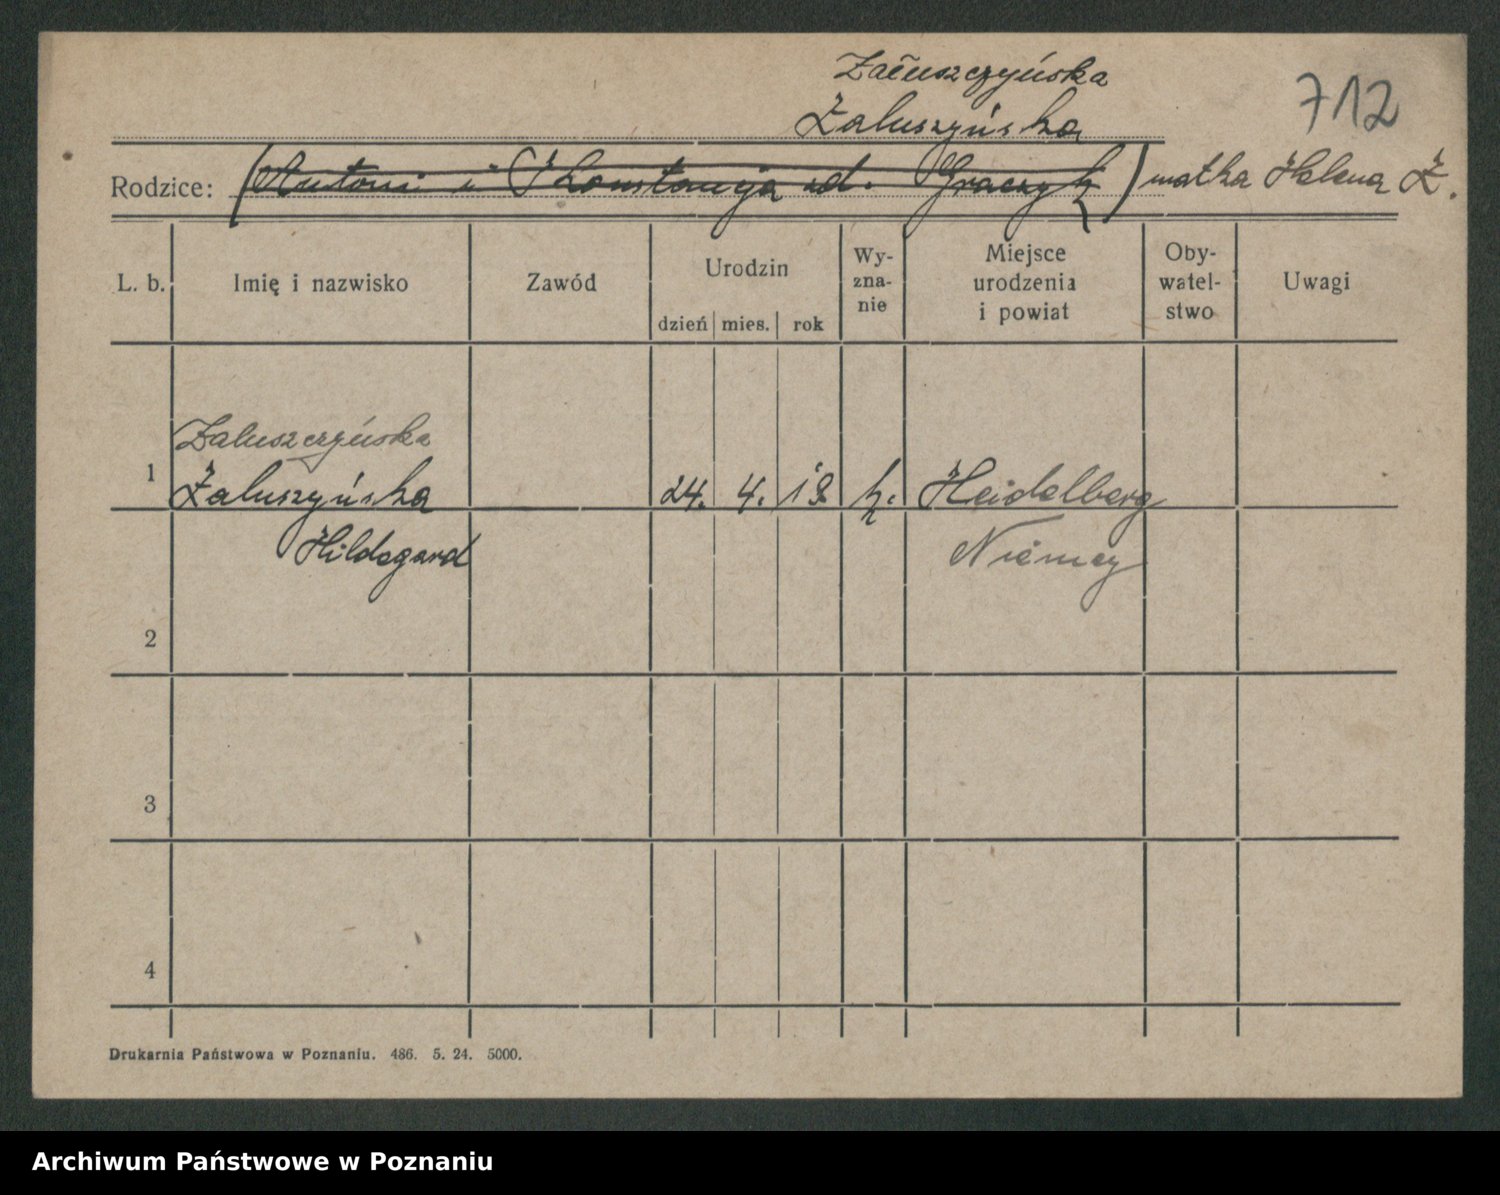 Załuszczyńska
Żaluszyńska
712
Rodzice: (Antoni i Konstancja zd. Graczyk) matka Helena Ż.
L. b. Imię i nazwisko Zawód Urodzin dzień mies. rok Wy-zna-nie Miejsce urodzenia i powiat Oby-watel-stwo Uwagi
Załuszczyńska
1 Żaluszyńska 24. 4. 18 k. Heidelberg
Hildegard Niemcy
2
3
4
Drukarnia Państwowa w Poznaniu. 486. 5. 24. 5000.
Archiwum Państwowe w Poznaniu